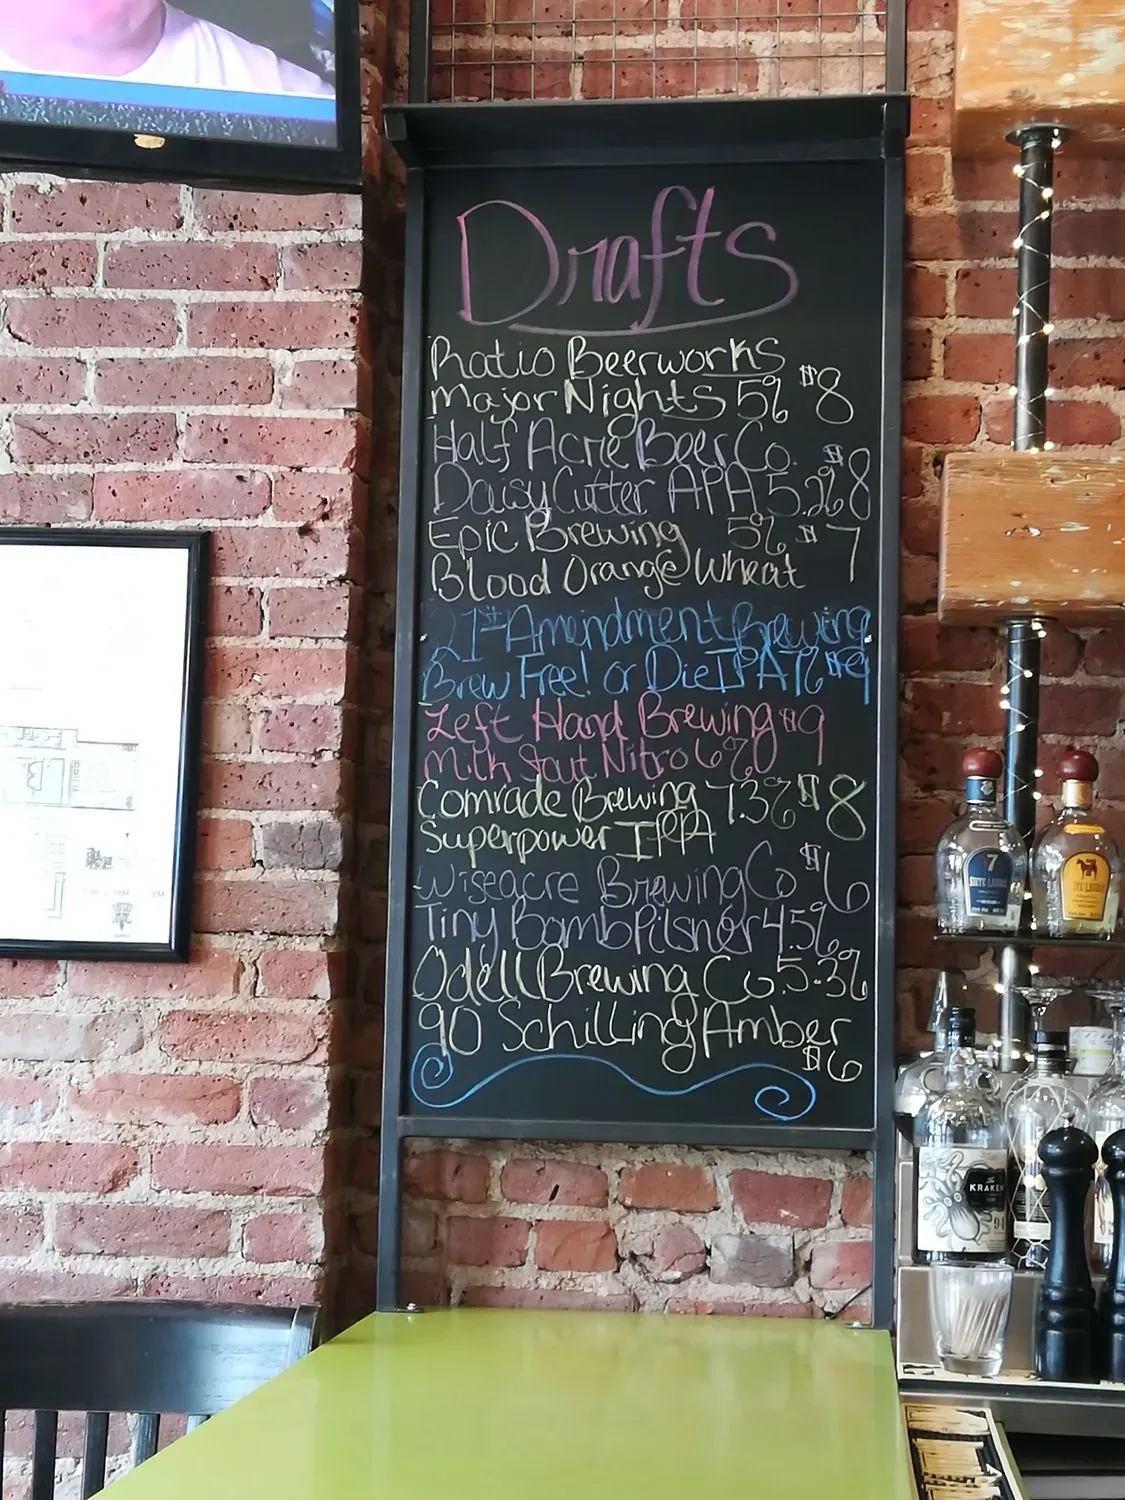 Drafts
Ratio Beerworks
Major Nights 5% $8
Half Acre Beer Co. $8
Daisy Cutter APA 5.2%
Epic Brewing 5% $7
Blood Orange Wheat
21st Amendment Brewing
Brew Free! or Die IPA 7% $9
Left Hand Brewing $9
Milk Stout Nitro 6%
Comrade Brewing 7.3% $8
Superpower IPA
Wiseacre Brewing Co $6
Tiny Bomb Pilsner 4.5%
Odell Brewing Co. 5.3%
90 Schilling Amber
$6
7
SIETE LEGUAS
SIETE LEGUAS
KRAKEN
94